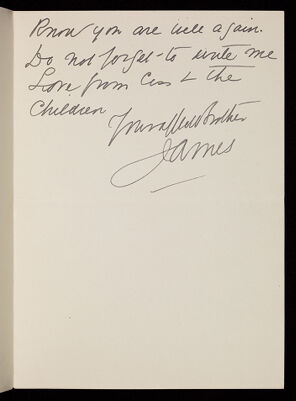 Know you are well again.
Do not forget to write me
Love from Ciss & the
Children
Your affec Brother
James